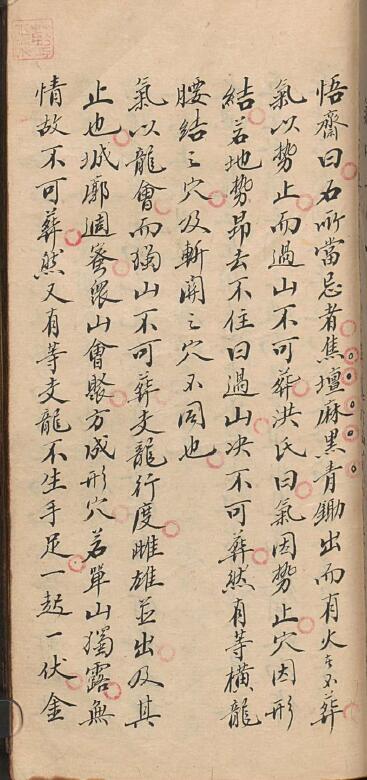 悟齋曰右所當忌者焦壇麻黑青鋤出而有火之不葬
氣以勢止而過山不可葬洪氏曰氣因勢止穴因形
結若地勢昂去不住曰過山决不可葬然有等橫龍
腰結之穴及斬関之穴不同也
氣以龍會而獨山不可葬支龍行度雌雄並出及其
止也城廓週密衆山會聚方成形穴若單山獨露無
情故不可葬然又有等支龍不生手足一起一伏金